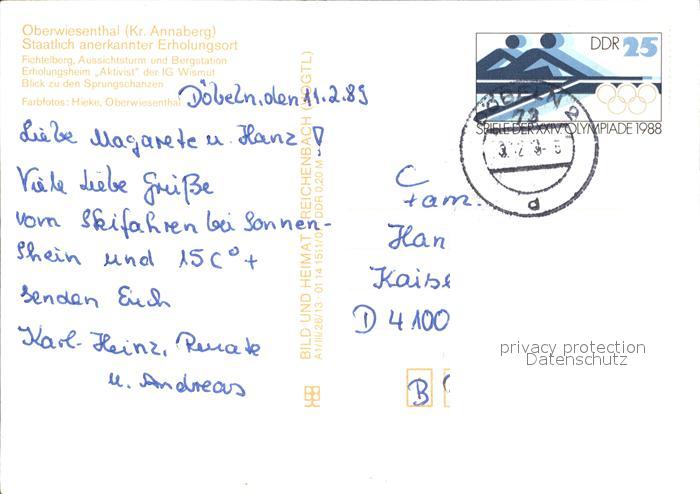 Oberwiesenthal (Kr. Annaberg)
Staatlich anerkannter Erholungsort
Fichtelberg, Aussichtsturm und Bergstation
Erholungsheim „Aktivist" der IG Wismut
Blick zu den Sprungschanzen
Farbfotos: Hieke, Oberwiesenthal
Döbeln, den 11.2.89
Liebe Magarete u. Hanz!
Viele liebe Grüße
vom Skifahren bei Sonnen-
shein und 15 C° +
senden Euch
Karl-Heinz, Renate
u. Andreas
BILD UND HEIMAT REICHENBACH (VOGTL)
A1/III/26/13 01 14 15
DDR 0,20 M
DDR 25
SPIELE DER XXIV. OLYMPIADE 1988
DÖBELN 2
73
d
Fam.
Han
Kaise
D 4100
B
privacy protection
Datenschutz